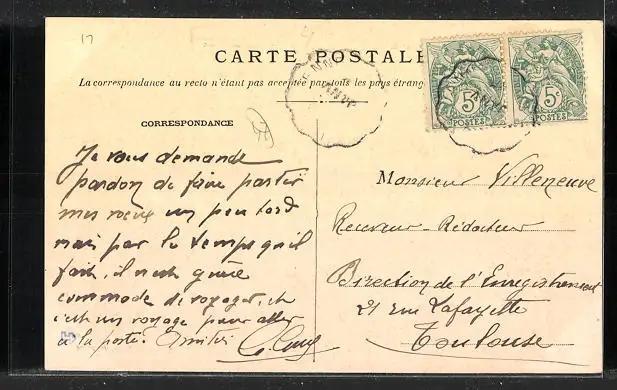 17
CARTE POSTALE
La correspondance au recto n'étant pas acceptée par tous les pays étrang
CORRESPONDANCE
Je vous demande
pardon de faire partir
mes vœux un peu tard
mais par le temps qu'il
fait, il n'est guère
commode de voyager, et
c'est un voyage pour aller
à la poste.
5c
POSTES
5c
POSTES
Monsieur Villeneuve
Receveur-Rédacteur
Direction de l'Enregistrement
21 rue Lafayette
Toulouse